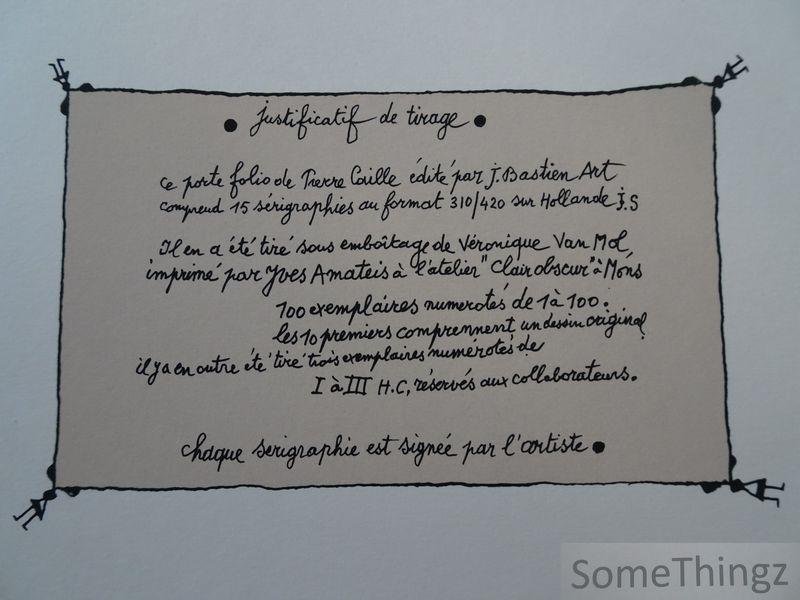 • justificatif de tirage •
ce porte folio de Pierre Caille édité par J. Bastien Art
comprend 15 sérigraphies au format 310/420 sur Hollande J.S
Il en a été tiré sous emboîtage de Véronique Van Mol,
imprimé par Yves Amateis à l'atelier "Clair obscur" à Mons
100 exemplaires numerotés de 1 à 100.
les 10 premiers comprennent un dessin original
il y a en outre été tiré trois exemplaires numérotés de
I à III H.C, réservés aux collaborateurs.
chaque serigraphie est signée par l'artiste •
SomeThingz